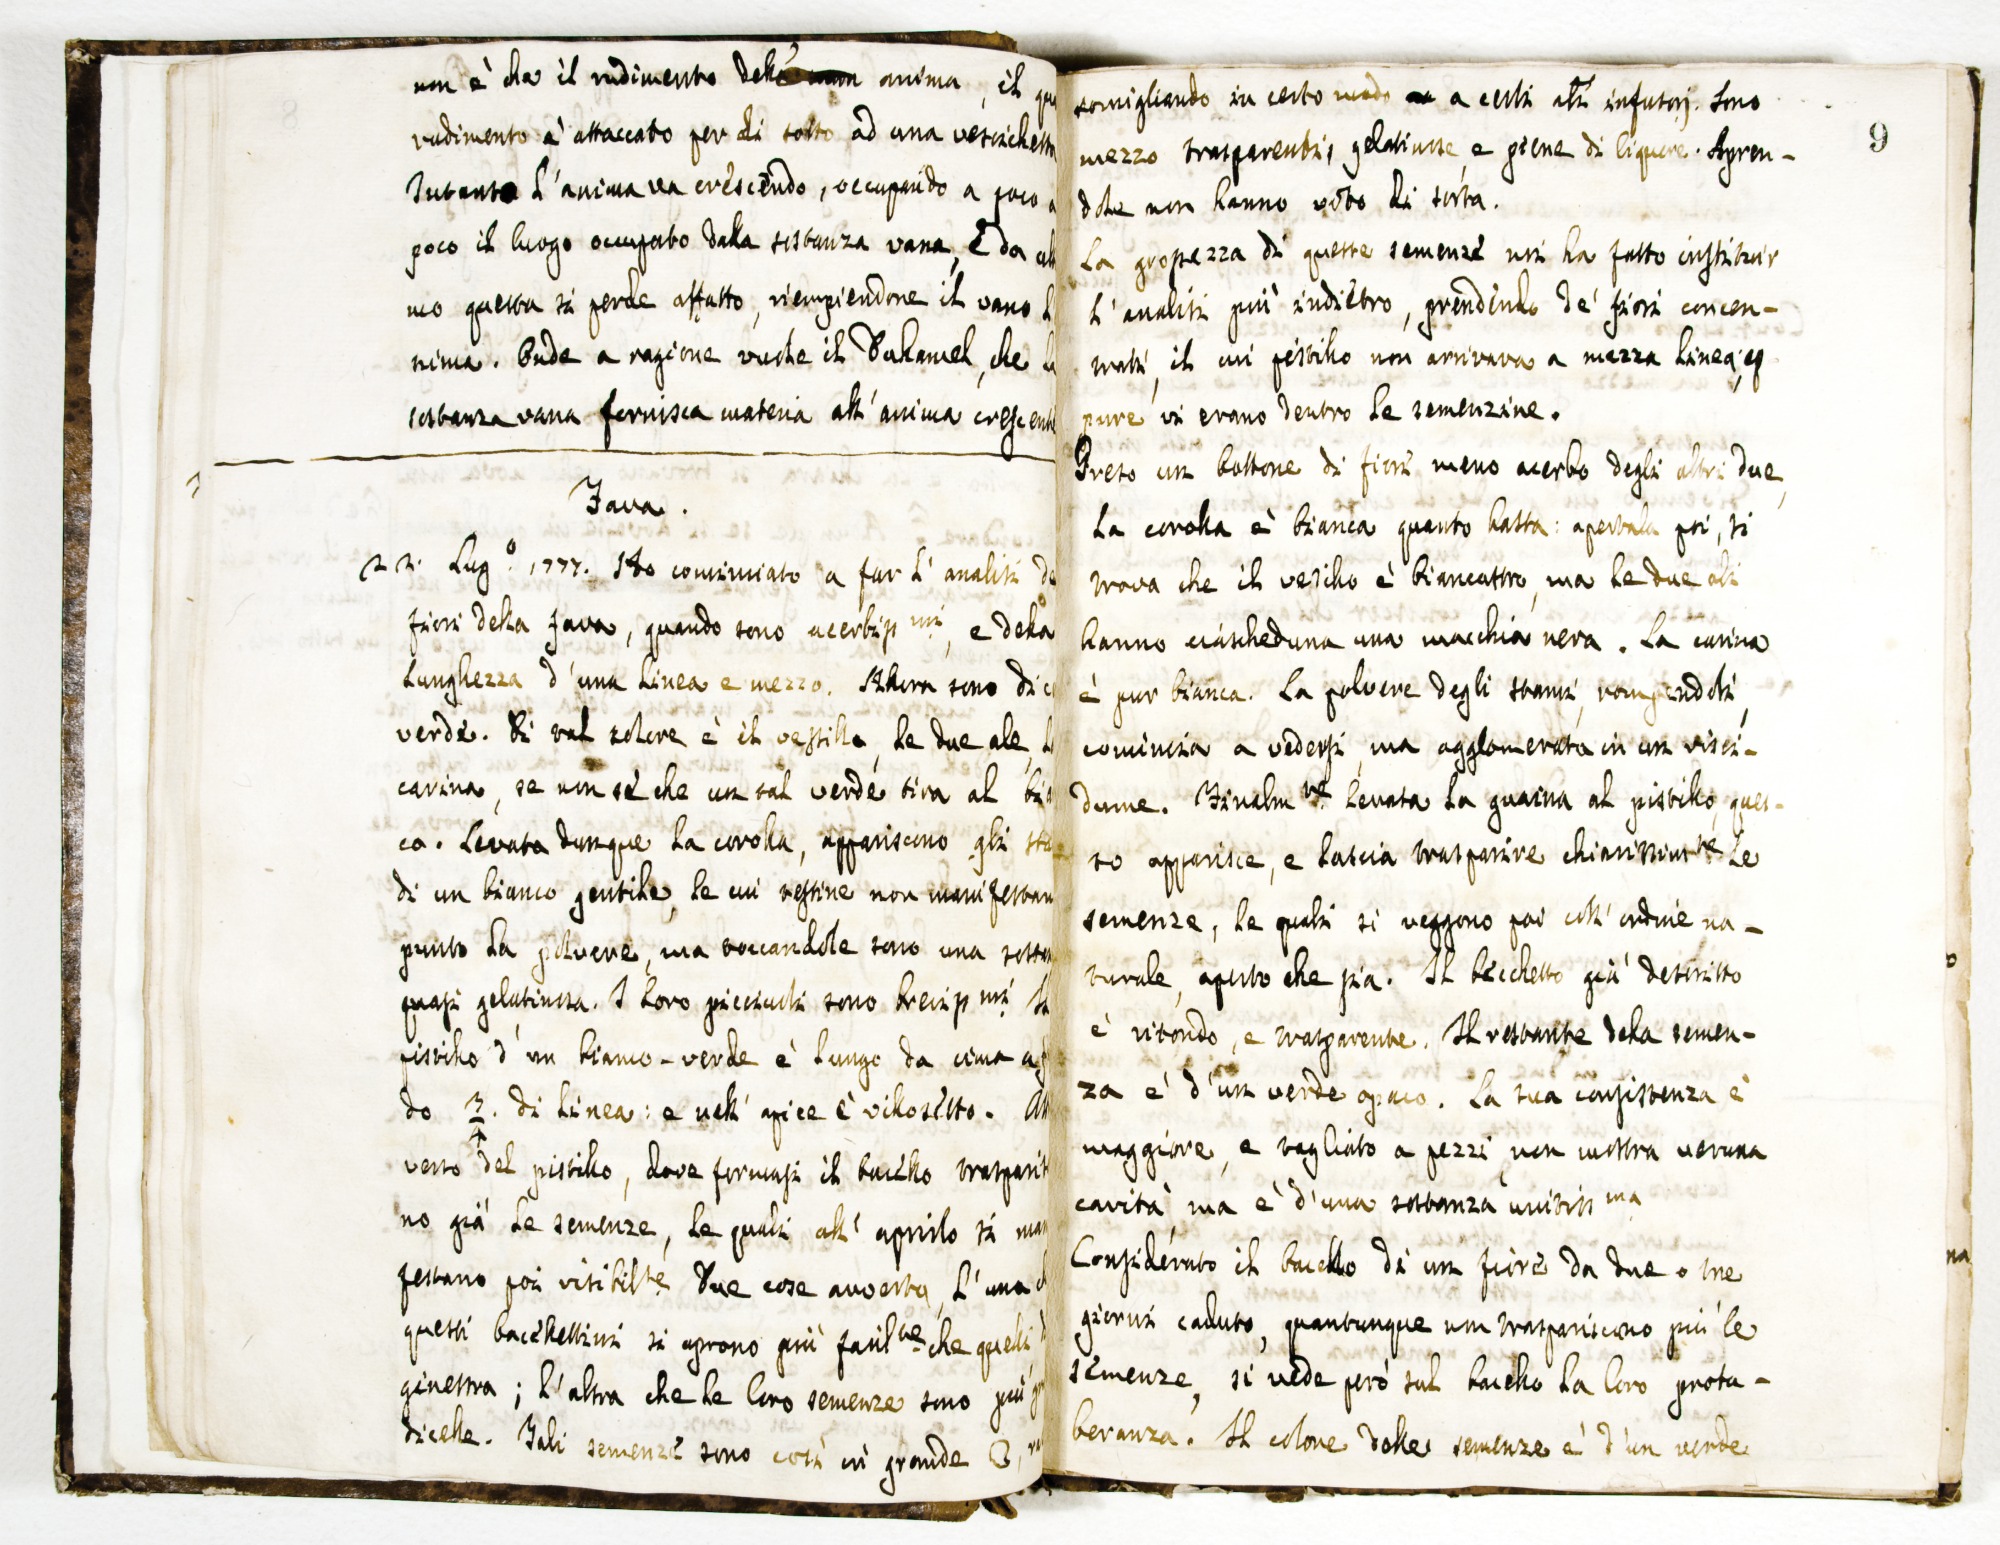 non è che il rudimento dell' anima, il qua
rudimento è attaccato per di sotto ad una vescichetta
Intanto l'anima va crescendo, occupando a poco a
poco il luogo occupato dalla sostanza vana, e da ulti
mo questa si perde affatto, riempiendone il vano l'
nima. Onde a ragione vuole il Duhamel, che la
sostanza vana fornisca materia all' anima crescente
Fava.
22. Lug.º 1777. Ho cominciato a far l' analisi de
fiori della fava, quando sono acerbiss.mi, e della
lunghezza d'una linea e mezzo. Allora sono di co
verde. Di tal colore è il vessillo, le due ale, la
carina, se non sè che un tal verde tira al bia
co. Levata dunque la corolla, appariscono gli sta
di un bianco gentile, le cui testine non manifestan
punto la polvere, ma toccandole sono una sostan
quasi gelatinosa. I loro picciuoli sono breviss.mi Il
pistillo d'un bianco-verde è lungo da cima a fo
do 3/4. di linea: e nell' apice è villosetto. Att
verso del pistillo, dove formasi il bacello traspari
no già le semenze, le quali all' aprirlo si mani
festano poi visibil.te Due cose avverto, l'una ch
questi baccellettini si aprono più facil.te che quelli d
ginestra; l'altra che le loro semenze sono più gr
dicelle. Tali semenze sono così in grande
9
somigliando in certo modo a certi altri infusorj. Sono
mezzo trasparenti, gelatinose, e piene di liquore. Apren-
dole non hanno vòto di sorta.
La grossezza di queste semenze mi ha fatto instituir
l'analisi più indietro, prendendo de' fiori concen-
trati, il cui pistillo non arrivava a mezza linea, ep
pure vi erano dentro le semenzine.
Preso un bottone di fiori meno acerbo degli altri due,
la corolla è bianca quanto latta: apertala poi, si
trova che il vesillo è biancastro, ma le due ali
hanno ciascheduna una macchia nera. La carina
è pur bianca. La polvere degli stami, rompendoli,
comincia a vedersi, ma agglomerata in un visci-
dume. Finalm.te levata la guaina al pistillo, ques-
to apparisce, e lascia trasparire chiarissim.te le
semenze, le quali si veggono poi coll' ordine na-
turale, aperto che sia. Il becchetto già descritto
è ritondo, e trasparente. Il restante della semen-
za è d'un verde opaco. La sua consistenza è
maggiore, e tagliato a pezzi non mostra veruna
cavità, ma è d'una sostanza unitiss.ma
Considerato il bacello di un fiore da due o tre
giorni caduto, quantunque non traspariscono più le
semenze, si vede però sul bacello la loro protu-
beranza. Il colore delle semenze è d'un verde